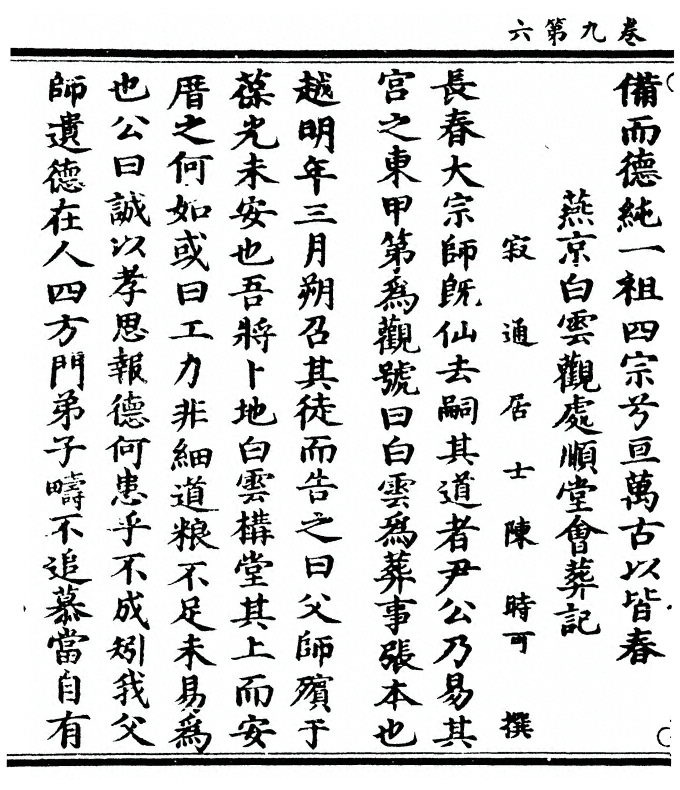 卷九第六
備而德純一祖四宗兮亘萬古以皆春
燕京白雲觀處順堂會葬記
寂通居士陳時可撰
長春大宗師既仙去嗣其道者尹公乃易其
宮之東甲第爲觀號曰白雲爲葬事張本也
越明年三月朔召其徒而告之曰父師殯于
葆光未安也吾將卜地白雲構堂其上而安
厝之何如或曰工力非細道粮不足未易爲
也公曰誠以孝思報德何患乎不成矧我父
師遺德在人四方門弟子疇不追慕當自有